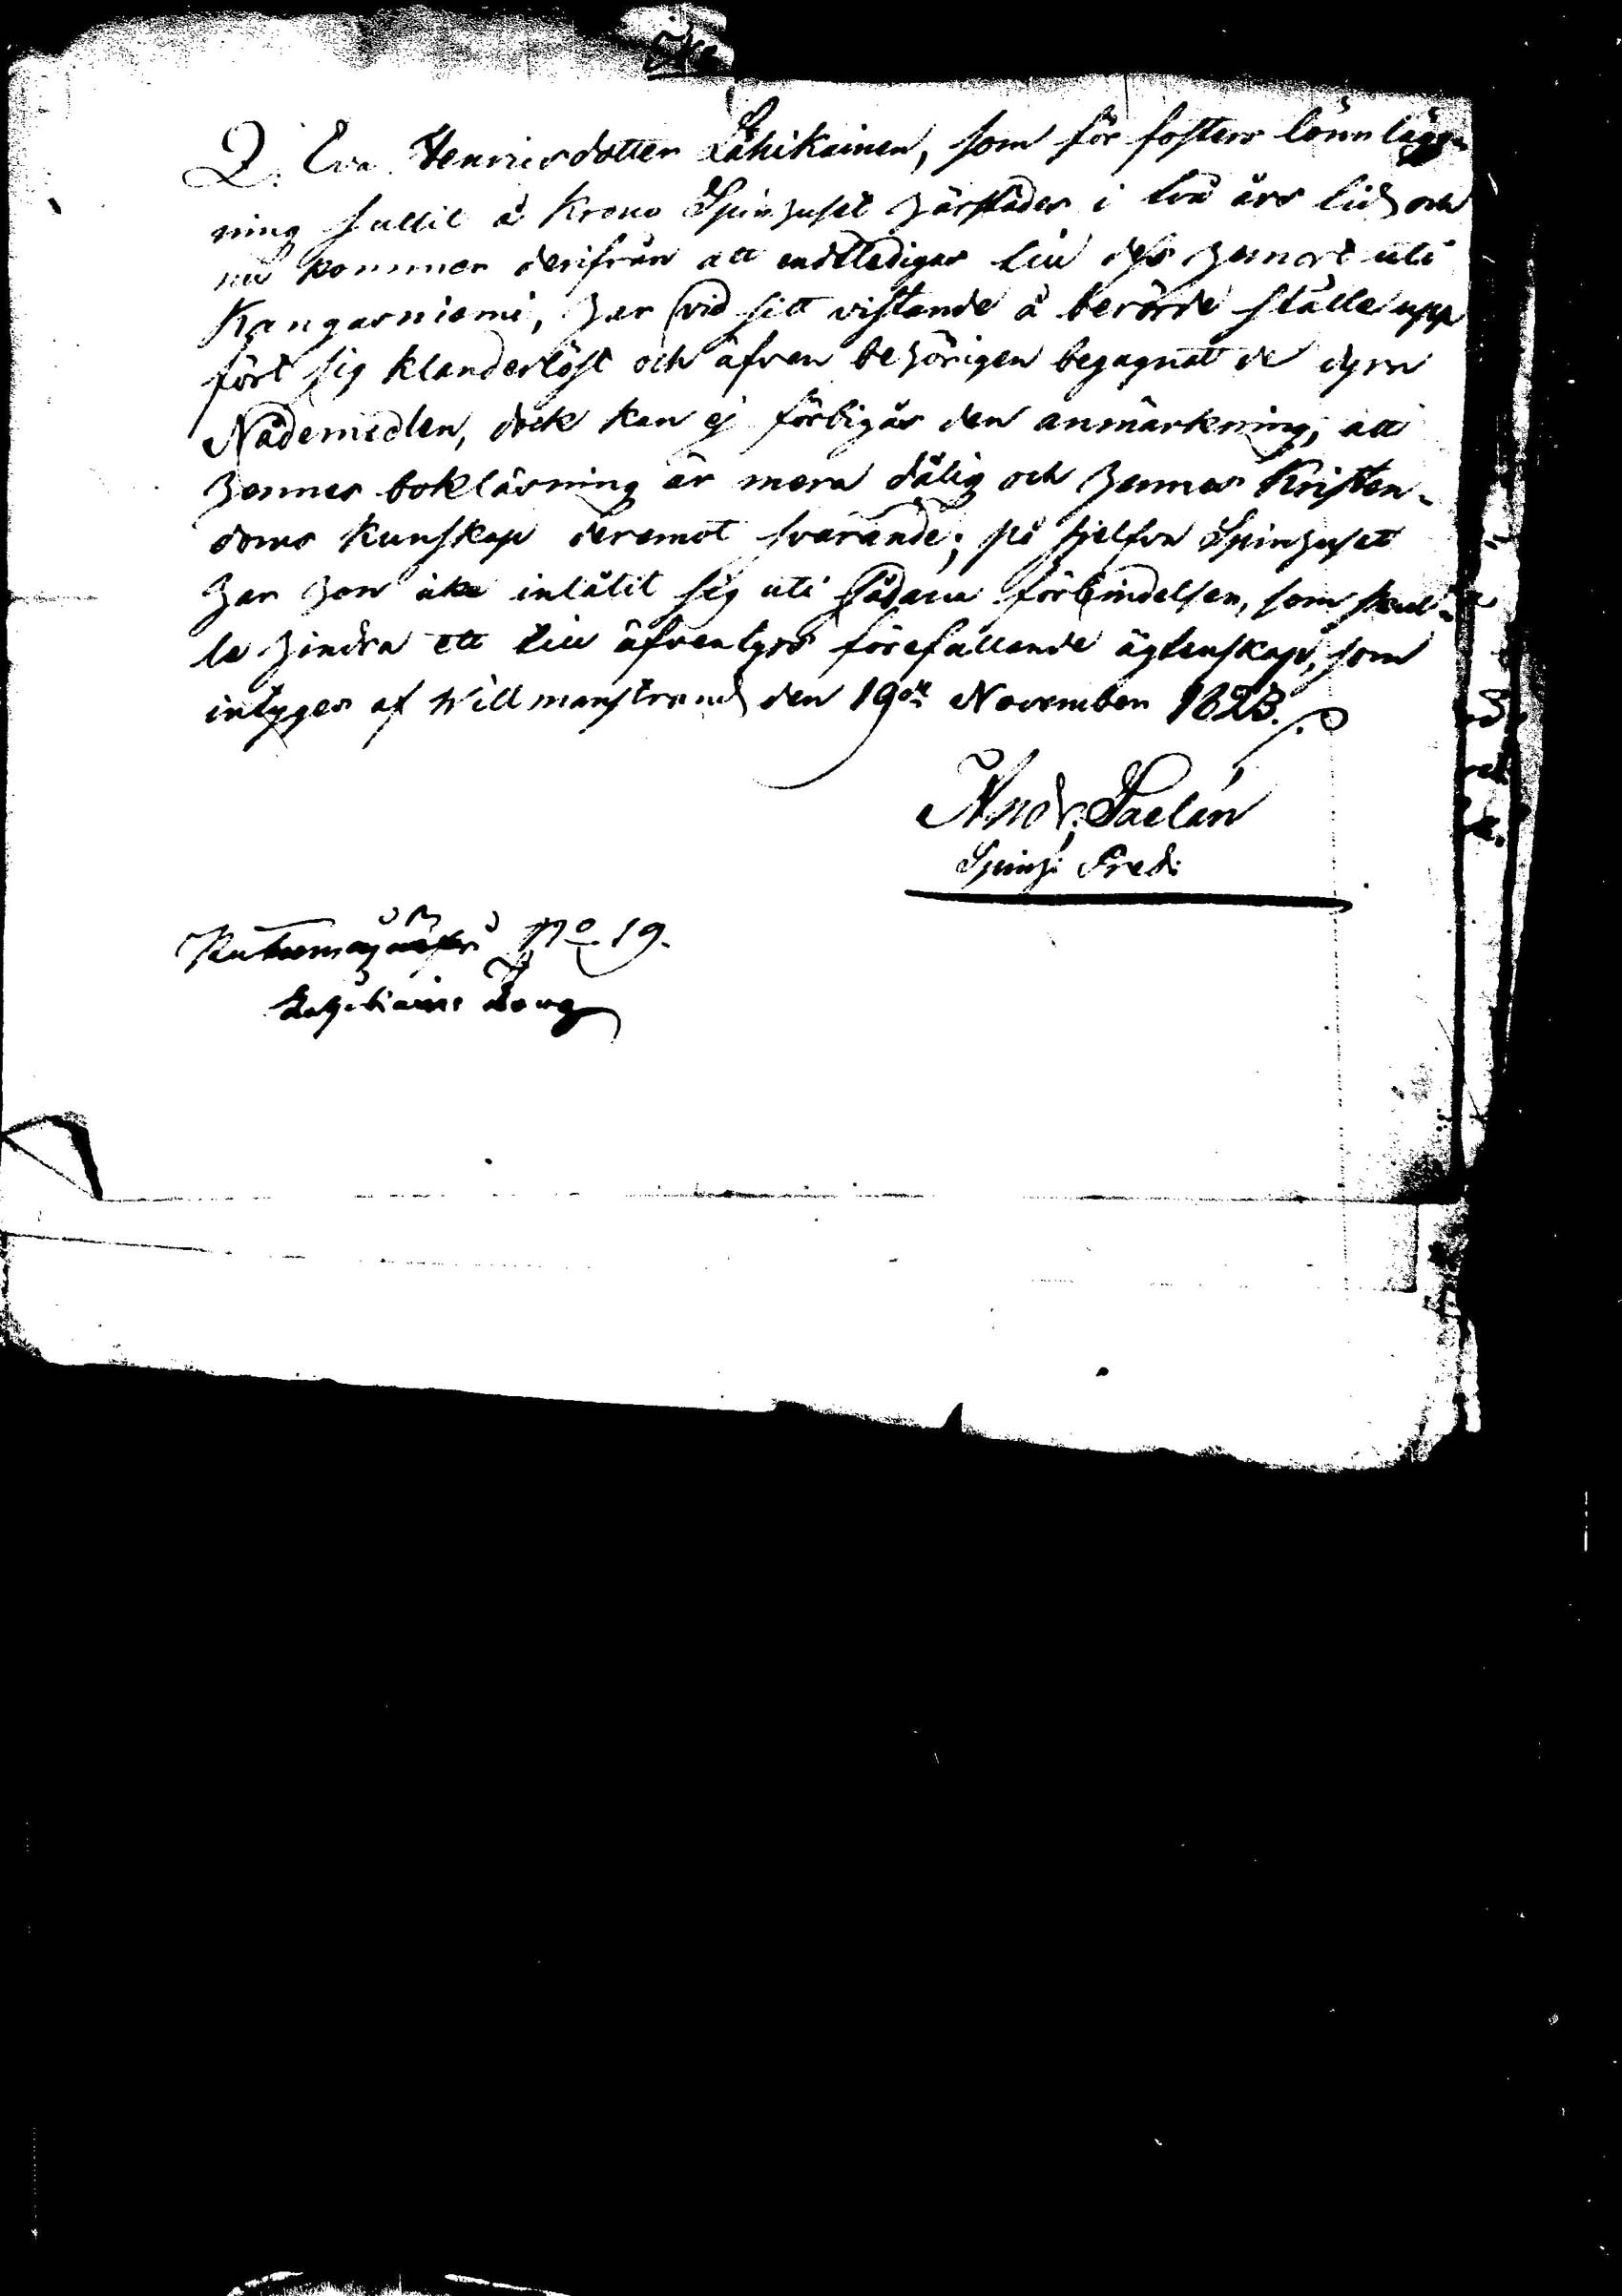 Q. Eva Henricsdotter Lahikainen, som för fosters lönnlägg-
ning suttit å Krono Spinhuset härstädes i två års tid och
nu kommer derifrån att endtledigas till dess hemort uti
Kangasniemi, har vid sitt vistande å berörde ställe upp
fört sig klanderlöst och äfven behörigen begagnat de dyra
Nådemedlen, dock kan ej förbigås den anmärkning, att
hennes boklärning är mera dålig och hennes Kristen-
doms kunskap deremot svarande; på sjelfva Spinhuset
har hon icke inlåtit sig uti sådana förbindelser, som skul-
le hindra ett till äfventyrs förefallande ägtenskap, som
intygas af Willmanstrand den 19de November 1823.
Andr. Faelan
Spinh: Pred:
No. 19.